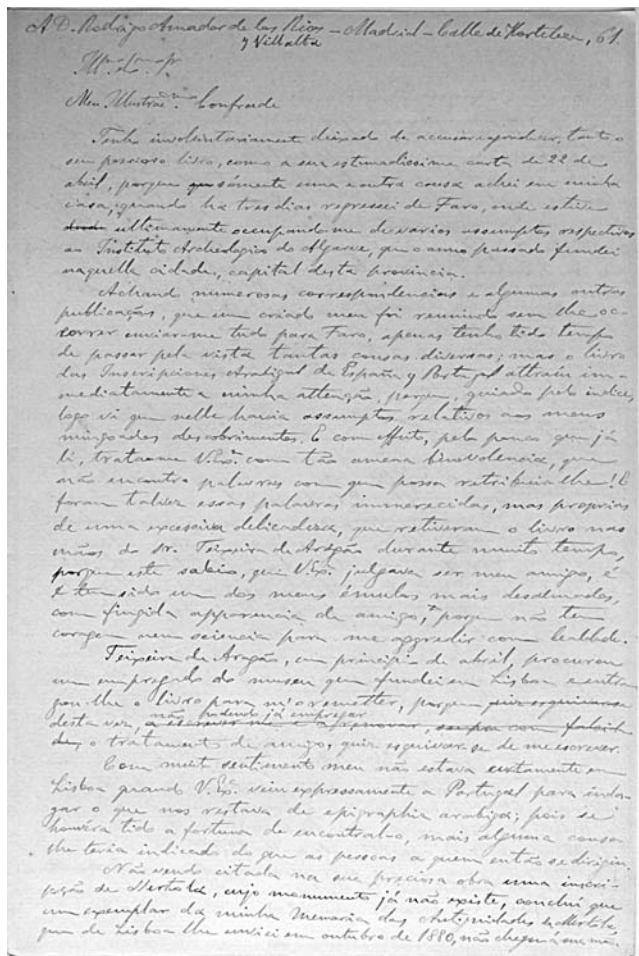 A D. Rodrigo Amador de los Rios – Madrid – Calle de Hortaleza, 61.
y Villalba
Meu Illustrad.mo Confrade
Tenho involuntariamente deixado de accusar e agradecer, tanto o
seu precioso livro, como a sua estimadissima carta de 22 de
abril, porque sómente uma e outra cousa achei em minha
casa, quando ha tres dias regressei de Faro, onde estive
ultimamente occupando-me de varios assumptos respectivos
ao Instituto Archeologico do Algarve, que o anno passado fundei
naquella cidade, capital desta provincia.
Achando numerosas correspondencias e algumas outras
publicações, que um criado meu foi reunindo sem lhe oc-
correr enviar-me tudo para Faro, apenas tenho tido tempo
de passar pela vista tantas cousas diversas; mas o livro
das Inscripciones Arabigas de España y Portugal attraiu im-
mediatamente a minha attenção, porque, guiado pelo indice,
logo vi que nelle havia assumptos relativos aos meus
mingoados descobrimentos. E com effeito, pelo pouco que já
li, trata-me V. Ex.ª com tão amena benevolencia, que
não encontro palavras com que possa retribuir-lhe! E
foram talvez essas palavras immerecidas, mas proprias
de uma excessiva delicadeza, que retiveram o livro nas
mãos do sr. Teixeira de Aragão durante muito tempo,
porque este sabio, que V. Ex.ª julgava ser meu amigo, é
e tem sido um dos meus émulos mais desalmados,
com fingida apparencia de amigo, porque não tem
coragem nem sciencia para me aggredir com lealdade.
Teixeira de Aragão, em principio de abril, procurou
um empregado do museu que fundei em Lisboa e entre-
gou-lhe o livro para m'o remetter, porque quiz esquivar-se
não podendo já empregar
desta vez, a escrever-me e a renovar, sempre com falsida-
de, o tratamento de amigo, quiz esquivar-se de me escrever.
Com muito sentimento meu não estava certamente em
Lisboa quando V. Ex.ª veiu expressamente a Portugal para inda-
gar o que nos restava de epigraphia arabiga; pois se
houvéra tido a fortuna de encontral-o, mais alguma cousa
lhe teria indicado do que as pessoas a quem então se dirigiu.
Não vendo citada na sua preciosa obra uma inscri-
pção de Mertola, cujo monumento já não existe, conclui que
um exemplar da minha Memoria das Antiguidades de Mertola,
que de Lisboa lhe enviei em outubro de 1880, não chegou á sua mão.